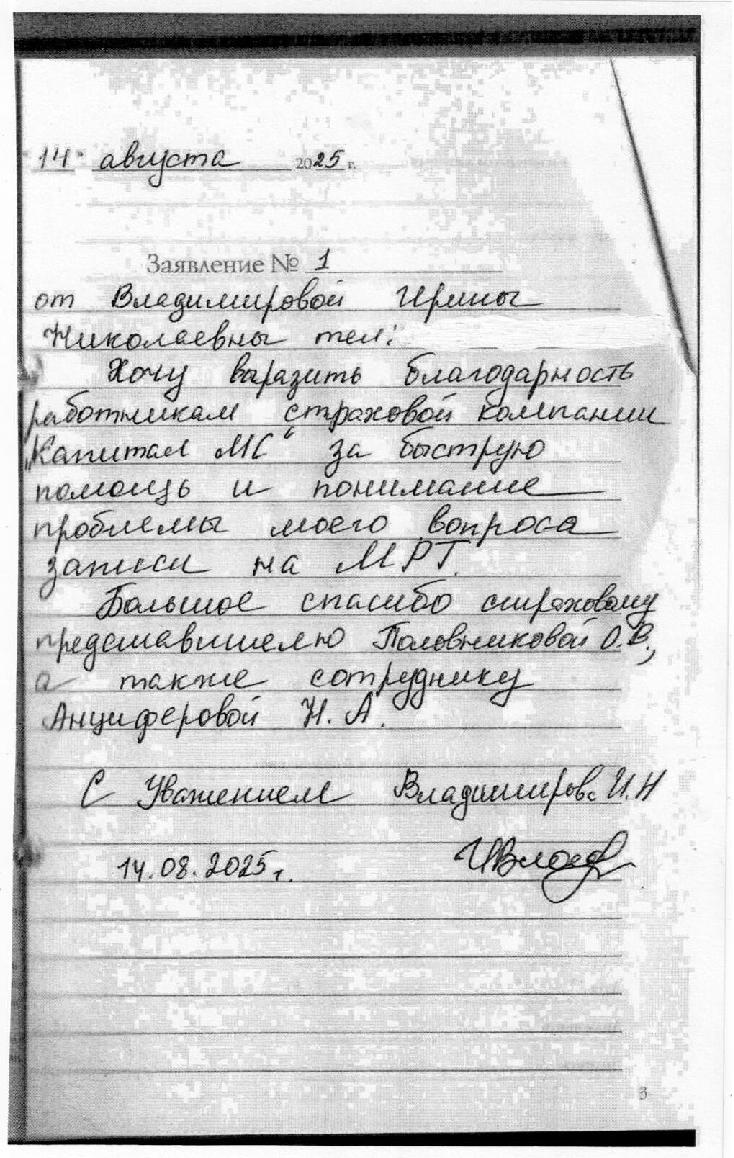 "14" августа 2025 г.
Заявление № 1
от Владимировой Ирины
Николаевны тел:
Хочу выразить благодарность
работникам страховой компании
„Капитал МС“ за быструю
помощь и понимание
проблемы моего вопроса
записи на МРТ.
Большое спасибо страховому
представителю Половниковой О.В.,
а также сотруднику
Анциферовой Н. А.
С Уважением Владимирова И.Н
14.08.2025г.
3